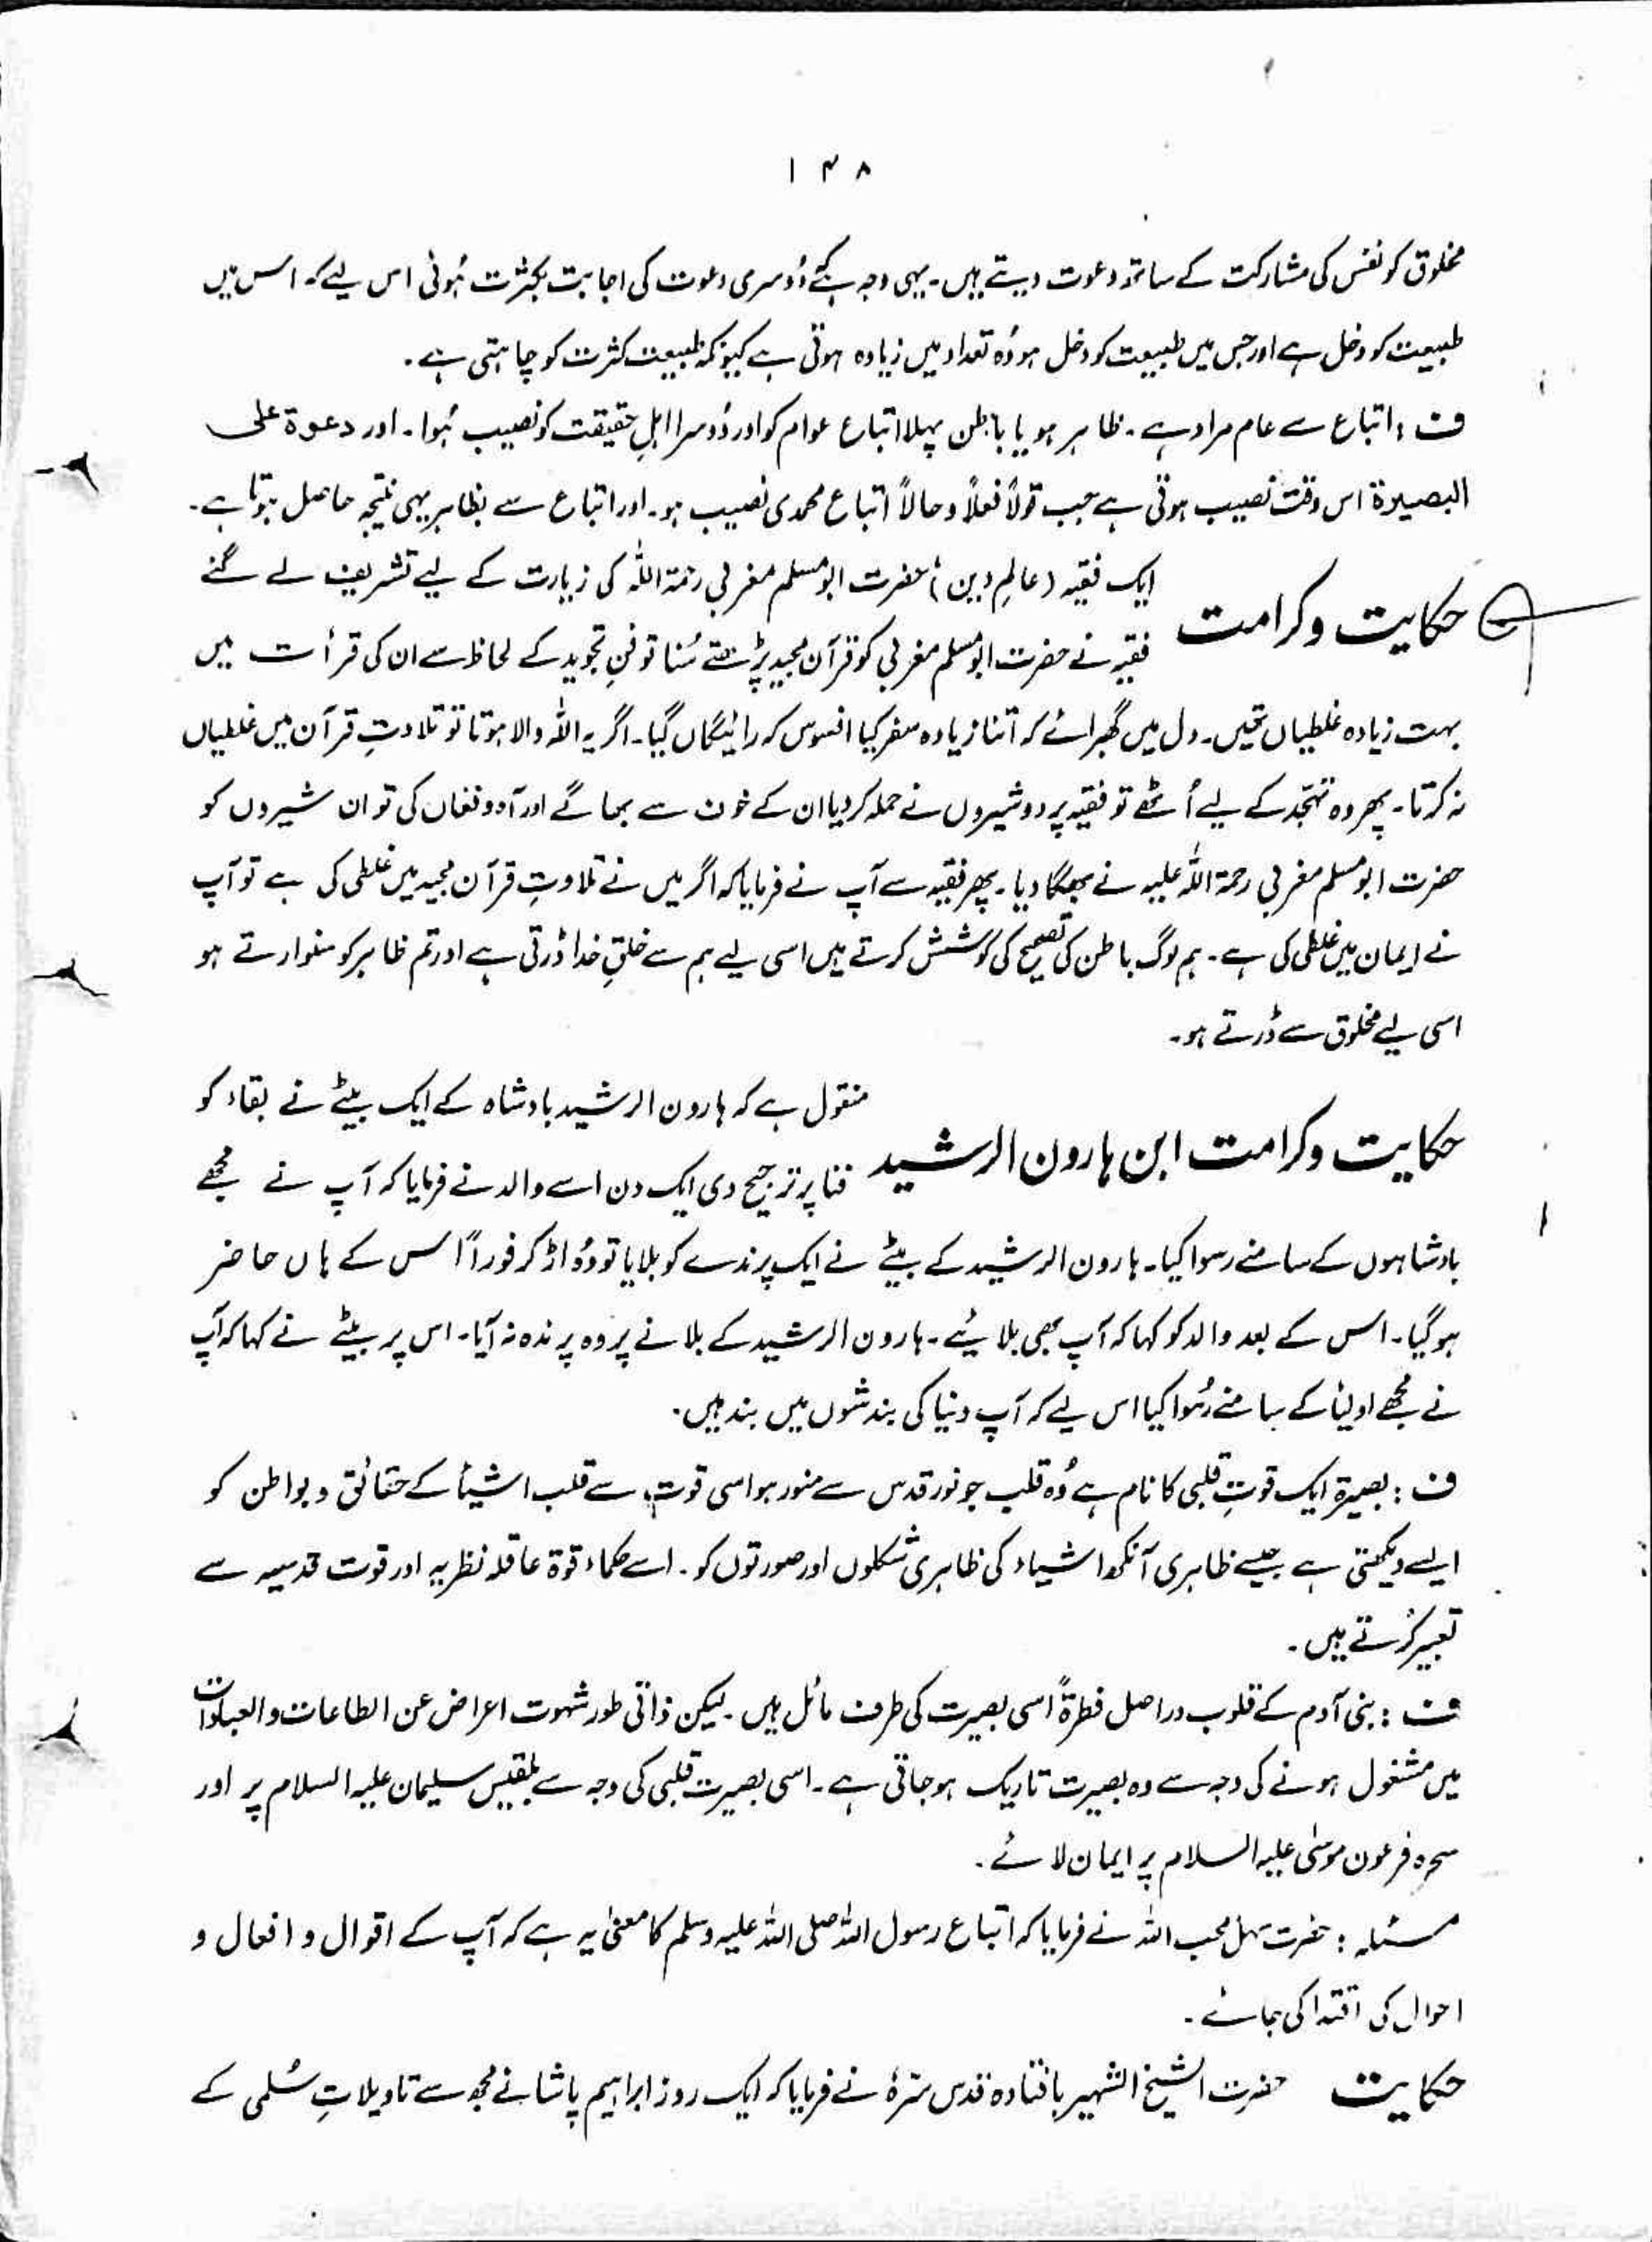 ۱۴۸
مخلوق کو نفس کی مشارکت کے ساتھ دعوت دیتے ہیں۔ یہی وجہ ہے کہ دُوسری دعوت کی اجابت بکثرت ہُوئی اس لیے کہ اس میں
طبیعت کو دخل ہے اور جس میں طبیعت کو دخل ہو وُہ تعداد میں زیادہ ہوتی ہے کیونکہ طبیعت کثرت کو چاہتی ہے۔
ف : اتباع سے عام مراد ہے۔ ظاہر ہو یا باطن پہلا اتباع عوام کو اور دُوسرا اہلِ حقیقت کو نصیب ہُوا۔ اور دعوۃ علی
البصیرۃ اس وقت نصیب ہوتی ہے جب قولاً فعلاً وحالاً اتباع محمدی نصیب ہو۔ اور اتباع سے بظاہر یہی نتیجہ حاصل ہوتا ہے۔
حکایت وکرامت ایک فقیہ (عالمِ دین) حضرت ابومسلم مغربی رحمۃ اللہ کی زیارت کے لیے تشریف لے گئے
فقیہ نے حضرت ابومسلم مغربی کو قرآن مجید پڑھتے سُنا تو فنِ تجوید کے لحاظ سے ان کی قرأت میں
بہت زیادہ غلطیاں تھیں۔ دل میں گھبرائے کہ اتنا زیادہ سفر کیا افسوس کہ رائیگاں گیا۔ اگر یہ اللہ والا ہوتا تو تلاوتِ قرآن میں غلطیاں
نہ کرتا۔ پھر وہ تہجّد کے لیے اُٹھے تو فقیہ پر دو شیروں نے حملہ کر دیا ان کے خوف سے بھاگے اور آہ و فغاں کی تو ان شیروں کو
حضرت ابومسلم مغربی رحمۃ اللہ علیہ نے بھگا دیا۔ پھر فقیہ سے آپ نے فرمایا کہ اگر میں نے تلاوتِ قرآن مجید میں غلطی کی ہے تو آپ
نے ایمان میں غلطی کی ہے۔ ہم لوگ باطن کی تصحیح کی کوشش کرتے ہیں اسی لیے ہم سے خلقِ خدا ڈرتی ہے اور تم ظاہر کو سنوارتے ہو
اسی لیے مخلوق سے ڈرتے ہو۔
حکایت وکرامت ابن ہارون الرشید منقول ہے کہ ہارون الرشید بادشاہ کے ایک بیٹے نے بقاء کو
فنا پر ترجیح دی ایک دن اسے والد نے فرمایا کہ آپ نے مجھے
بادشاہوں کے سامنے رسوا کیا۔ ہارون الرشید کے بیٹے نے ایک پرندے کو بلایا تو وُہ اڑ کر فوراً اس کے ہاں حاضر
ہو گیا۔ اس کے بعد والد کو کہا کہ آپ بھی بلائیے۔ ہارون الرشید کے بلانے پر وہ پرندہ نہ آیا۔ اس پر بیٹے نے کہا کہ آپ
نے مجھے اولیأ کے سامنے رُسوا کیا اس لیے کہ آپ دنیا کی بندشوں میں بند ہیں۔
ف : بصیرۃ ایک قوتِ قلبی کا نام ہے وُہ قلب جو نور قدس سے منور ہو اسی قوت سے قلب اشیأ کے حقائق و بواطن کو
ایسے دیکھتی ہے جیسے ظاہری آنکھ اشیاء کی ظاہری شکلوں اور صورتوں کو۔ اسے حکماء قوۃ عاقلہ نظریہ اور قوت قدسیہ سے
تعبیر کرتے ہیں۔
ف : بنی آدم کے قلوب دراصل فطرۃً اسی بصیرت کی طرف مائل ہیں۔ لیکن ذاتی طور شہوت اعراض عن الطاعات والعبادات
میں مشغول ہونے کی وجہ سے وہ بصیرت تاریک ہو جاتی ہے۔ اسی بصیرت قلبی کی وجہ سے بلقیس سلیمان علیہ السلام پر اور
سحرہ فرعون موسٰی علیہ السلام پر ایمان لائے۔
مسئلہ : حضرت سہل محب اللہ نے فرمایا کہ اتباع رسول اللہ صلی اللہ علیہ وسلم کا معنیٰ یہ ہے کہ آپ کے اقوال و افعال و
احوال کی اقتدا کی جائے۔
حکایت حضرت الشیخ الشہیر بافتادہ قدس سرہٗ نے فرمایا کہ ایک روز ابراہیم پاشا نے مجھ سے تاویلاتِ سُلمی کے